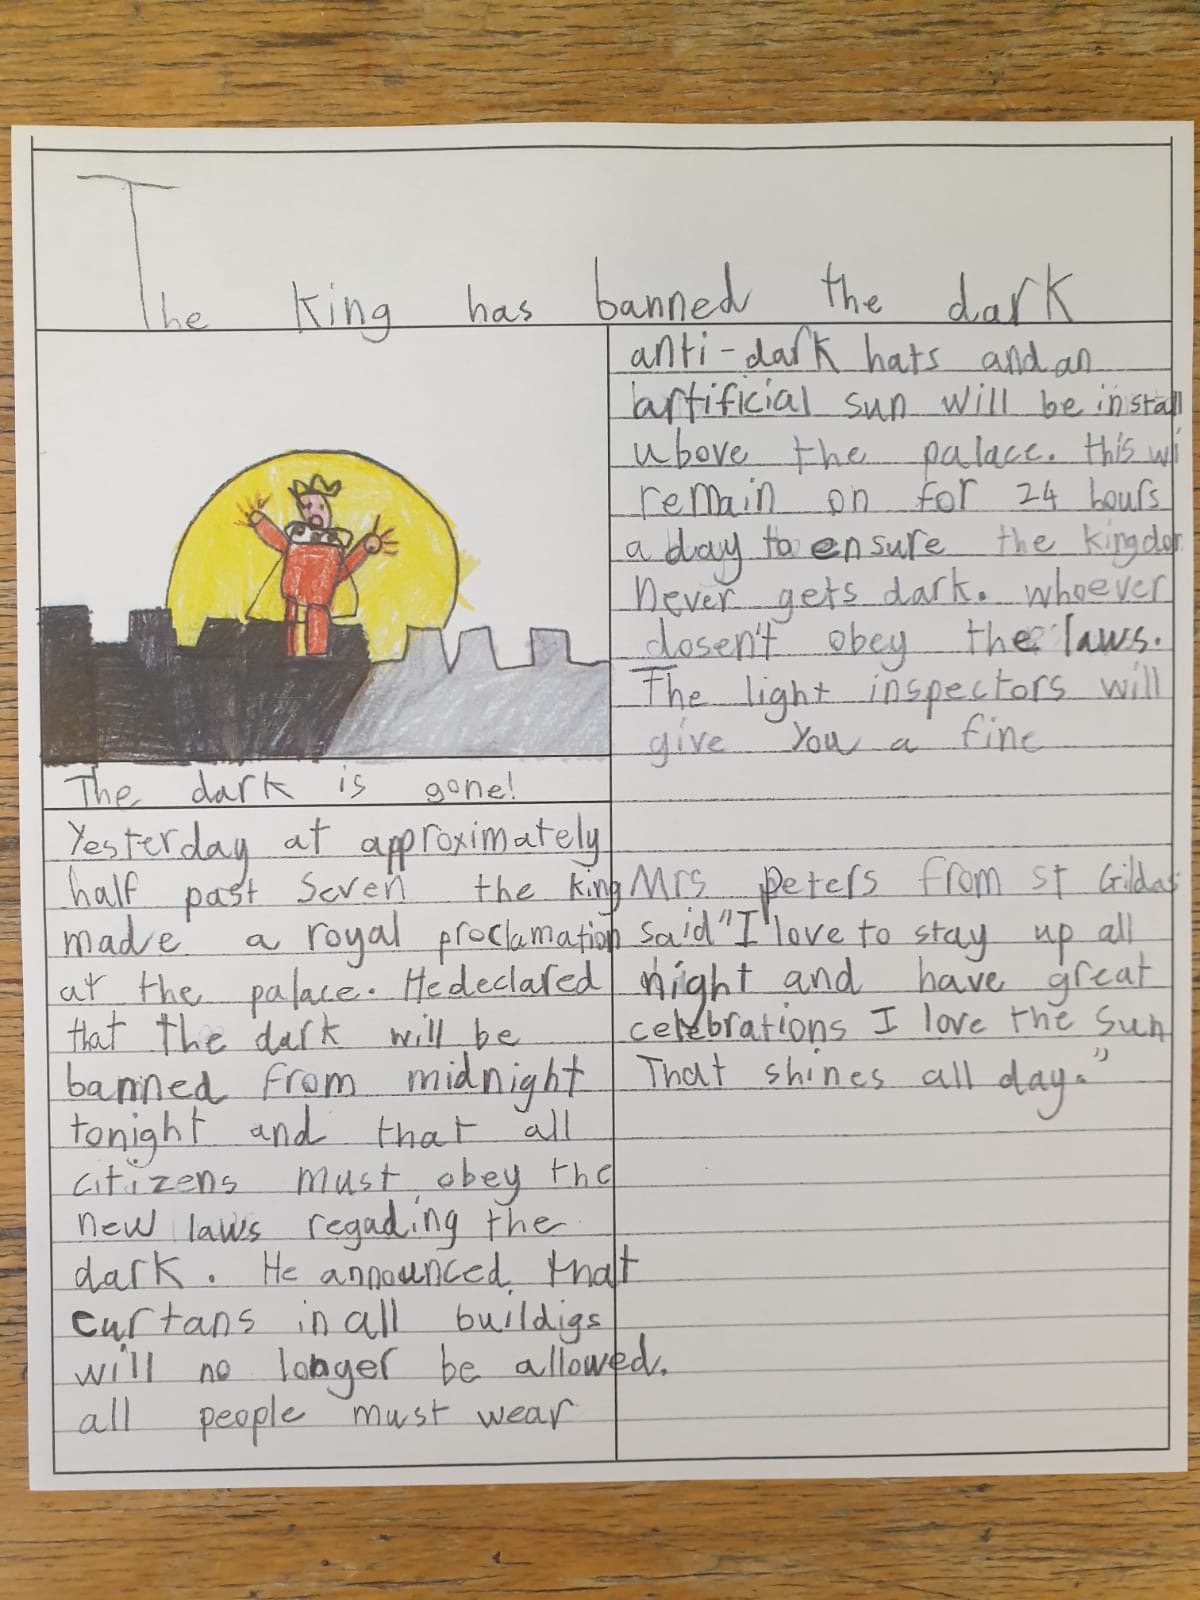 The King has banned the dark
The dark is gone!
Yesterday at approximately
half past seven the king
made a royal proclamation
at the palace. He declared
that the dark will be
banned from midnight
tonight and that all
citizens must obey the
new laws regading the
dark. He announced that
curtans in all buildigs
will no longer be allowed.
all people must wear
anti-dark hats and an
artificial sun will be install
ubove the palace. this wi
remain on for 24 hours
a day to ensure the kingdom
Never gets dark. whoever
dosen't obey the laws.
The light inspectors will
give You a fine
Mrs peters from st Gildas
said "I love to stay up all
night and have great
celebrations I love the sun
That shines all day."